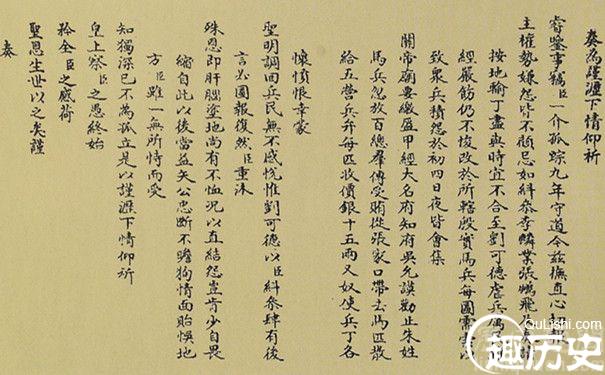 奏為謹瀝下情仰祈
睿鑒事竊臣一介孤踪九年守道今茲撫直心切報
主權勢嫌怨皆不顧忌如糾叅李鱗業張鵬飛
按地輸丁盡與時宜不合至劉可德虐兵屬
經嚴飭仍不悛改於所轄殷實馬兵每圖需
致衆兵積怨於初四日夜皆會集
關帝廟要繳盔甲經大名府知府吳允謨勸止朱姓
馬兵忽放百總羣傳受賄從張家口帶去馬匹散
給五營兵弁每匹收價銀十五兩又奴使兵丁各
懷憤恨幸蒙
聖明調回兵民無不感悅惟劉可德以臣糾叅肆有後
言必圖報復然臣重沐
殊恩即肝腦塗地尚有不恤況以直結怨豈肯少自畏
縮自此以後當益矢公忠斷不瞻狥情面貽悞地
方臣雖一無所恃而受
知獨深已不為孤立是以謹瀝下情仰祈
皇上察臣之愚終始
矜全臣之感荷
聖恩生世以之矣謹
奏
QuLiShi.com
趣历史